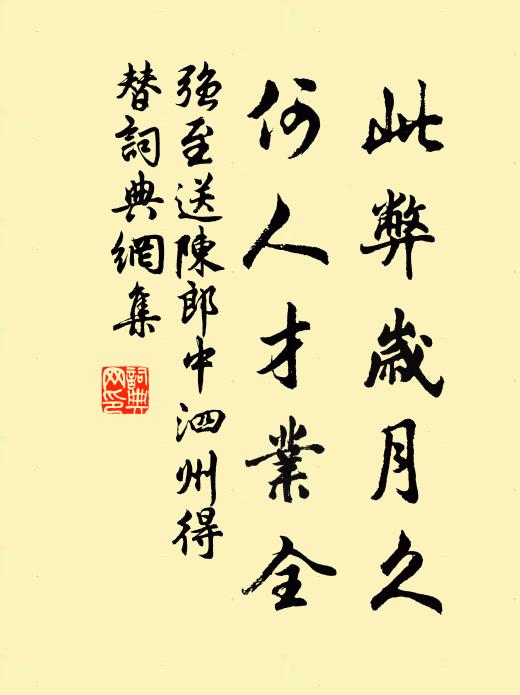 此弊歲月久
何人才業全
强至送陳郎中泗州得
替詞典網集
詞典網印